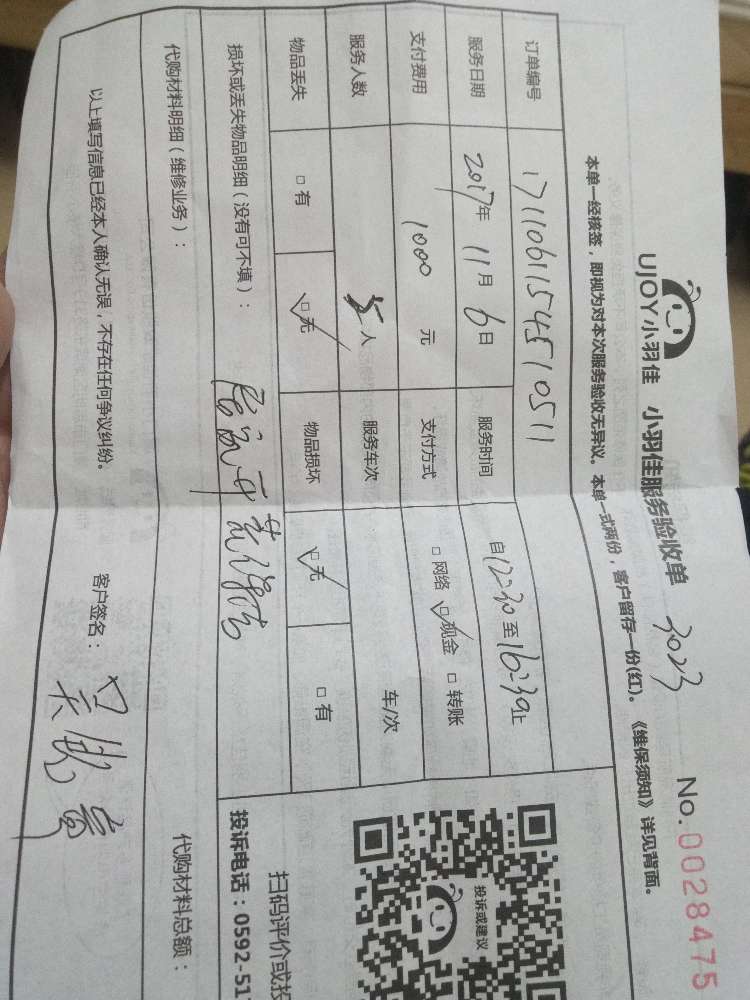 UJOY小羽佳 小羽佳服务验收单 3023 No.0028475
本单一经核签，即视为对本次服务验收无异议。本单一式两份，客户留存一份(红)。《维保须知》详见背面。
订单编号 171106115451 0511
服务日期 2017年 11月 6日 服务时间 自12:30至16:30止
支付费用 1000 元 支付方式 □网络 ☑现金 □转账
服务人数 5人 服务车次 车/次
物品丢失 □有 ☑无 物品损坏 ☑无 □有
损坏或丢失物品明细（没有可不填）：
代购材料明细（维修业务）： 代购材料总额：
以上填写信息已经本人确认无误，不存在任何争议纠纷。 客户签名：
投诉或建议
扫码评价或投
投诉电话：0592-51